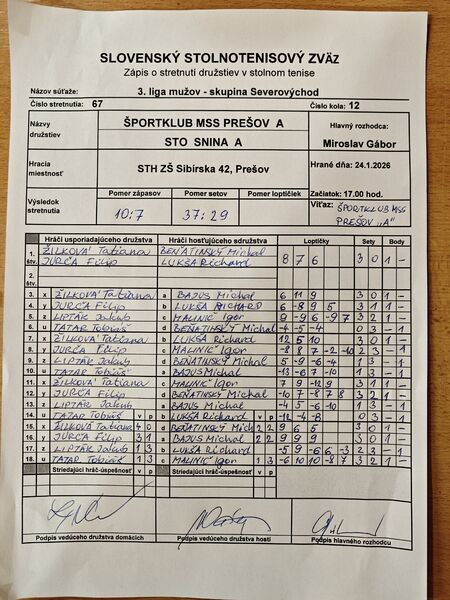 SLOVENSKÝ STOLNOTENISOVÝ ZVÄZ
Zápis o stretnutí družstiev v stolnom tenise
Názov súťaže: 3. liga mužov - skupina Severovýchod
Číslo stretnutia: 67 Číslo kola: 12
Názvy družstiev
ŠPORTKLUB MSS PREŠOV A
STO SNINA A
Hlavný rozhodca:
Miroslav Gábor
Hracia miestnosť
STH ZŠ Sibírska 42, Prešov
Hrané dňa: 24.1.2026
Začiatok: 17.00 hod.
Výsledok stretnutia
Pomer zápasov Pomer setov Pomer loptičiek
10:7 37:29
Víťaz: ŠPORTKLUB MSS
PREŠOV "A"
Hráči usporiadajúceho družstva Hráči hosťujúceho sdružstva Loptičky Sety Body
1. štv. ŽILKOVÁ Tatiana BEŇATINSKÝ Michal 8 7 6 3 0 1 -
JURČA Filip LUKŠA Richard
2. štv.
3. x ŽILKOVÁ Tatiana a BAJUS Michal 6 11 9 3 0 1 -
4. y JURČA Filip b LUKŠA RICHARD 6 -8 9 5 3 1 1 -
5. z LIPTÁK Jakub c MALINIČ Igor 9 -9 6 -9 7 3 2 1 -
6. u TATAR Tobiáš d BEŇATINSKÝ Michal -4 -5 -4 0 3 - 1
7. x ŽILKOVÁ Tatiana b LUKŠA Richard 12 5 10 3 0 1 -
8. y JURČA Filip c MALINIČ Igor -8 8 7 -2 -10 2 3 - 1
9. z LIPTÁK Jakub d BEŇATINSKÝ Michal 5 -9 -6 -4 1 3 - 1
10. u TATAR Tobiáš a BAJUS Michal -13 -6 7 -10 1 3 - 1
11. x ŽILKOVÁ Tatiana c MALINIČ Igor 7 9 -12 9 3 1 1 -
12. y JURČA Filip d BEŇATINSKÝ Michal -10 7 -8 7 8 3 2 1 -
13. z LIPTÁK Jakub a BAJUS Michal -4 5 -6 -10 1 3 - 1
14. u TATAR Tobiáš v p b LUKŠA Richard v p -12 -4 -8 0 3 - 1
15. x ŽILKOVÁ Tatiana 4 0 d BEŇATINSKÝ Michal 2 2 9 6 5 3 0 1 -
16. y JURČA Filip 3 1 a BAJUS Michal 2 2 9 9 9 3 0 1 -
17. z LIPTÁK Jakub 1 3 b LUKŠA Richard -5 9 -6 6 -3 2 3 - 1
18. u TATAR Tobiáš 1 3 c MALINIČ Igor 1 3 -6 10 10 -8 7 3 2 1 -
Striedajúci hráč-úspešnosť v p Striedajúci hráč-úspešnosť v p
Podpis vedúceho družstva domácich Podpis vedúceho družstva hostí Podpis hlavného rozhodcu